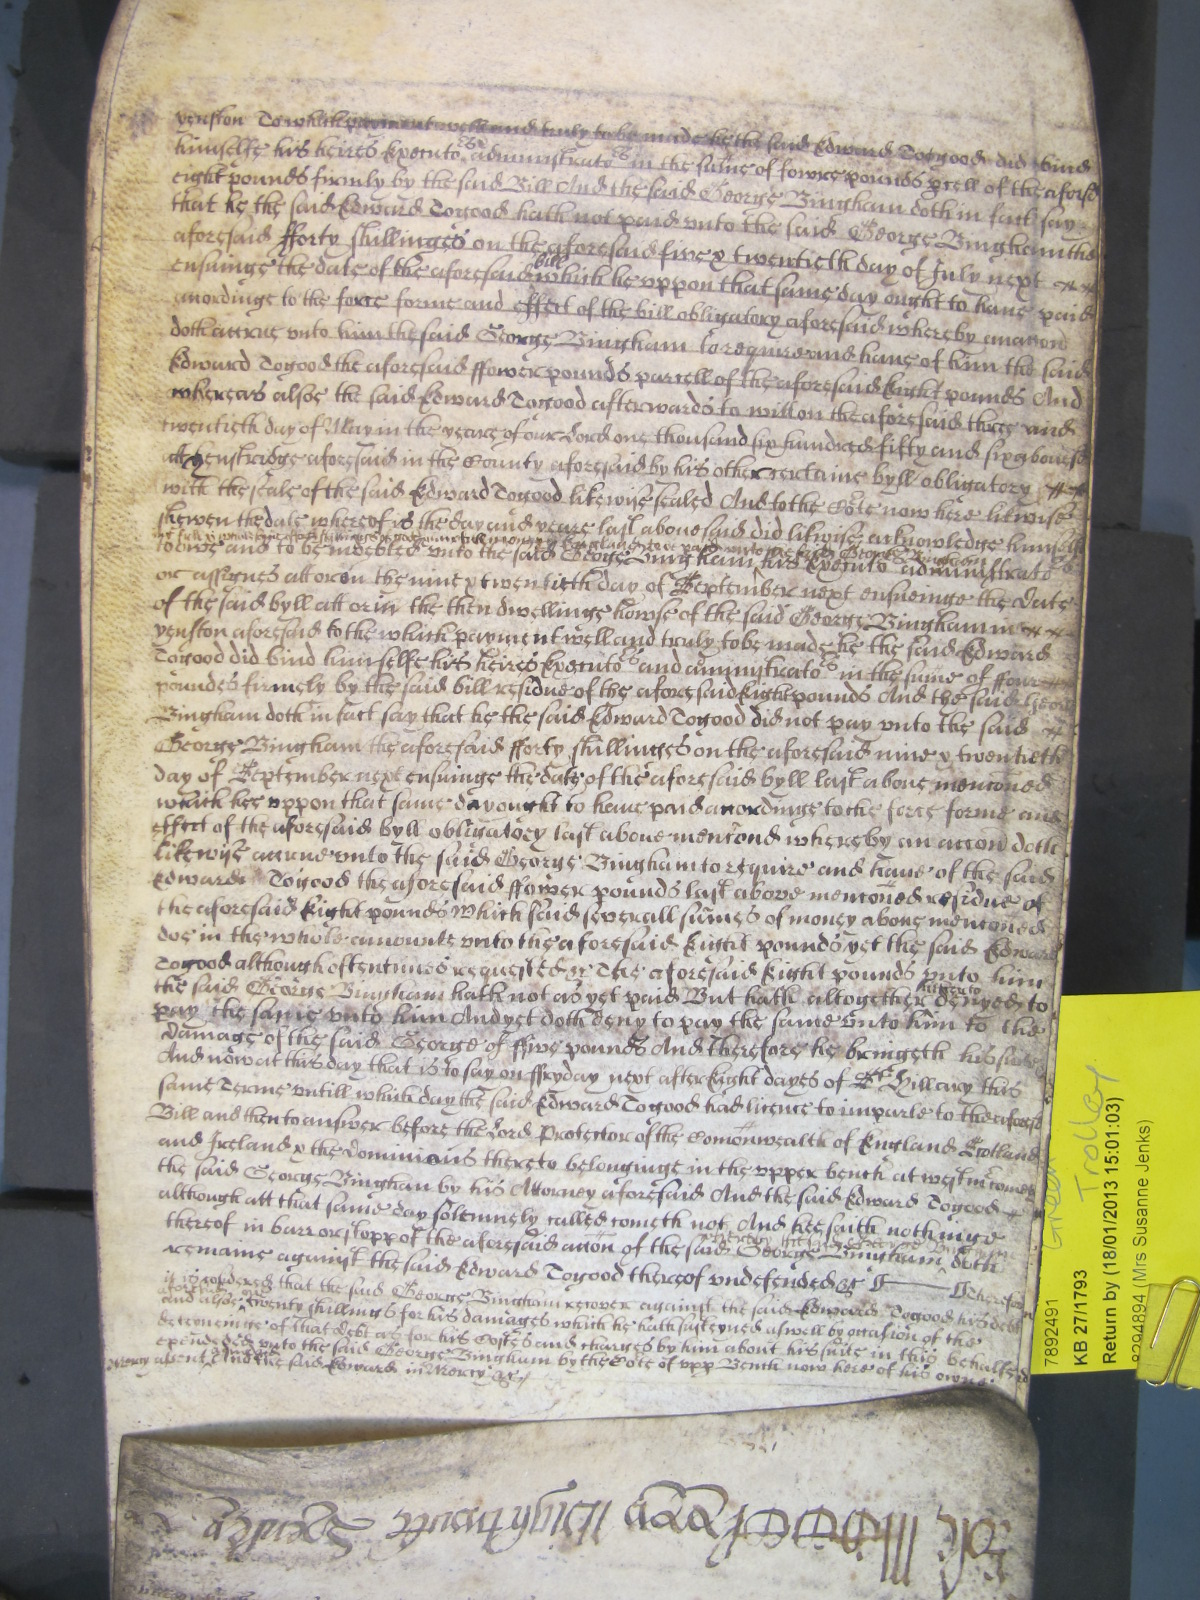 yenston To which payment well and truly to be made he the said Edward Togood did bind
himselfe his heires Executors administrators in the sume of fowre pounds pcell of the aforesd
eight pounds firmly by the said Bill And the said George Bingham doth in fact say
that he the said Edward Togood hath not paid unto the said George Bingham the
aforesaid fforty shillinges on the aforesaid five & twentieth day of July next
ensuinge the date of the aforesaid bill which he uppon that same day ought to have paid
accordinge to the force forme and effect of the bill obligatory aforesaid whereby an accon
doth accrue unto him the said George Bingham to require and have of him the said
Edward Togood the aforesaid ffower pounds parcell of the aforesaid Eight pounds And
whereas alsoe the said Edward Togood afterwards to witt on the aforesaid three and
twentieth day of May in the yeare of our Lord one thousand six hundred fifty and six abovesd
att henstridge aforesaid in the County aforesaid by his other certaine byll obligatory
with the seale of the said Edward Togood likewise sealed And to the Cote now here likewise
shewen the date whereof is the day and yeare last abovesaid did likewise acknowledge himselfe
to owe and to be indebted unto the said George Bingham his Executors administrators
or assignes att or on the nine & twentieth day of September next ensueinge the date
of the said byll att or in the then dwellinge howse of the said George Bingham in
yenston aforesaid to the which payment well and truly to be made he the said Edward
Togood did bind himselfe his heires Executors and administrators in the sume of ffour
poundes firmely by the said bill residue of the aforesaid Eight pounds And the said George
Bingham doth in fact say that he the said Edward Togood did not pay unto the said
George Bingham the aforesaid fforty shillinges on the aforesaid nine & twentieth
day of September next ensuinge the date of the aforesaid byll last above menconed
which hee uppon that same day ought to have paid accordinge to the force forme and
effect of the aforesaid byll obligatory last above mencond whereby an accon doth
likewise accrue unto the said George Bingham to require and have of the said
Edward Togood the aforesaid ffower pounds last above menconed residue of
the aforesaid Eight pounds Which said severall sumes of money above menconed
doe in the whole amounte unto the aforesaid Eight pounds yet the said Edward
Togood although oftentimes requested &c The aforesaid Eight pounds unto him
the said George Bingham hath not as yet paid But hath altogether hitherto denyed to
pay the same unto him And yet doth deny to pay the same unto him to the
damage of the said George of ffive pounds And therefore he bringeth his suite
And now at this day that is to say on ffryday next after Eight dayes of St Hillary this
same Terme untill which day the said Edward Togood had licence to imparle to the aforesd
Bill and then to answer before the Lord Protector of the Comonwealth of England Scotland
and Ireland & the Dominions thereto belonginge in the upper bench at westm comes
the said George Bingham by his Attorney aforesaid And the said Edward Togood
although att that same day solemnely called cometh not And hee saith nothinge
thereof in barr or stopp of the aforesaid accon of the said George Bingham doth
remaine against the said Edward Togood thereof undefended &c Therefore
it is considered that the said George Bingham recover against the said Edward Togood his debt
aforesaid and alsoe twenty shillings for his damages which he hath susteyned aswell by occasion of the
deteineinge of that debt as for his Costes and charges by him about his suite in this behalfe
expended unto the said George Bingham by the Cote of upp Bench now here of his owne
Mercy assent And the said Edward in Mercy &c
7892491
Green Trolley
KB 27/1793
Return by (18/01/2013 15:01:03)
8294894 (Mrs Susanne Jenks)